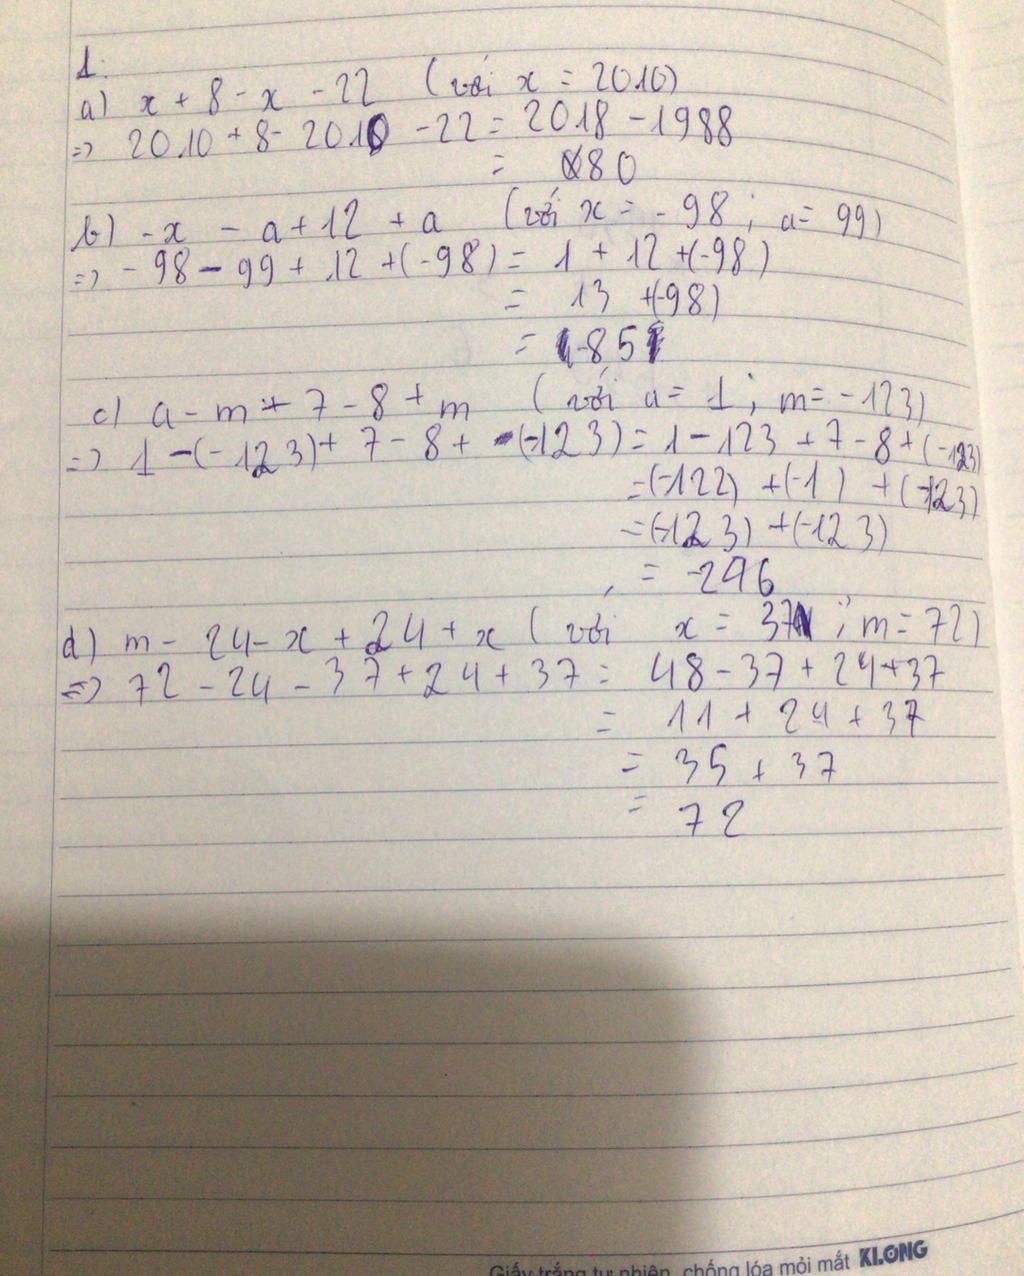 1.
a) x + 8 - x - 22 (với x = 2010)
=> 2010 + 8 - 2010 - 22 = 2018 - 1988
= 80
b) -x - a + 12 + a (với x = -98 ; a = 99)
=> -98 - 99 + 12 + (-98) = 1 + 12 + (-98)
= 13 + (-98)
= -85
c) a - m + 7 - 8 + m (với a = 1 ; m = -123)
=> 1 - (-123) + 7 - 8 + (-123) = 1 - 123 + 7 - 8 + (-123)
= (-122) + (-1) + (-123)
= (-123) + (-123)
= -246
d) m - 24 - x + 24 + x (với x = 37 ; m = 72)
=> 72 - 24 - 37 + 24 + 37 = 48 - 37 + 24 + 37
= 11 + 24 + 37
= 35 + 37
= 72
Giấy trắng tự nhiên, chống lóa mỏi mắt KLONG